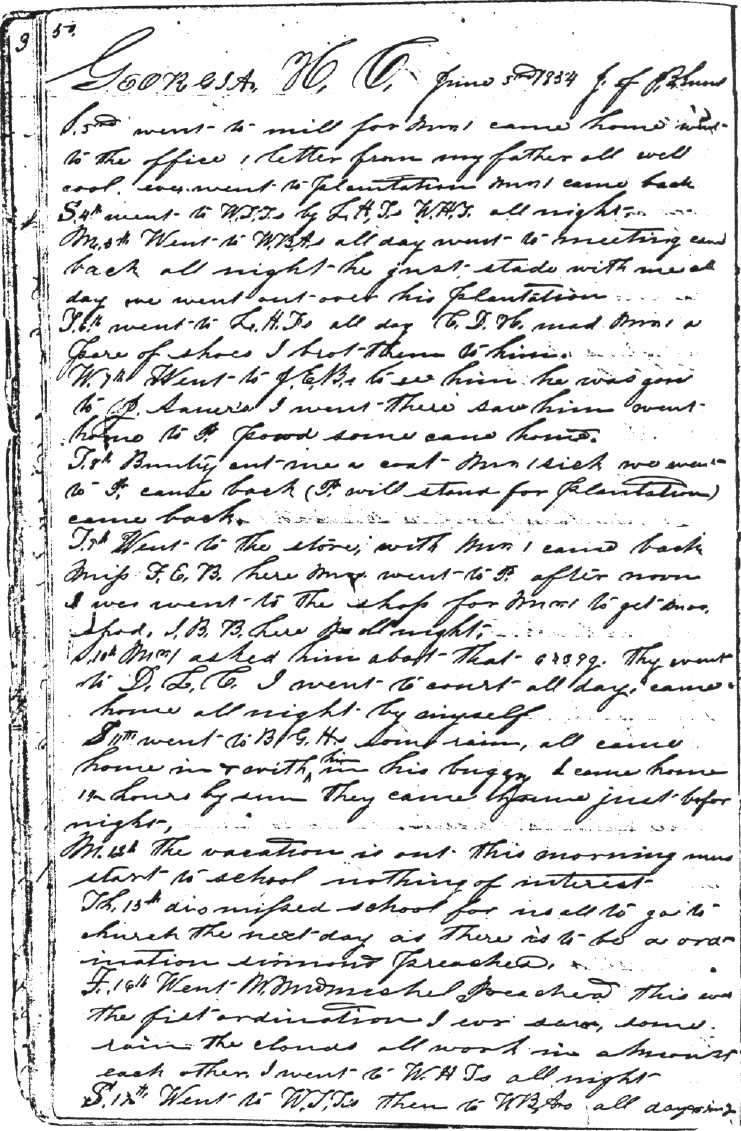 9 50
GEORGIA, H. C. June 3rd 1854 J. of
S. 3rd went to mill for Mrs I came home went
to the office 1 letter from my father all well
cool. eve. went to plantation came back
S 4th went to W.T.Ts by L.H.Ts W.H.T. all night.
M. 5th Went to W.B.As all day went to meeting came
back all night he just stade with me all
day we went out over his plantation
T. 6th went to L.H.Ts all day C.D.H. mad a
pare of shoes I brot them to him.
W. 7th Went to J.E.Bs to see him he was gon
to P. I went there saw him went
home to P. some came home.
T. 8th cut me a coat sick we went
to P. came back (P. will stand for plantation)
came back.
T. 9th Went to the store, with came back
Miss F.E.B. here went to P. after noon
I was went to the shop for to get
J.B.B. here all night.
S. 10th asked him about that Thy went
to D.L.C. I went to court all day, came
home all night by myself
S 11th went to B.G.Hs some rain, all came
home in & with him in his buggy I came home
hours by sun they came home just befor
night,
M. 12th the vacation is out this morning mus
start to school nothing of interest
Th. 15th dismissed school for us all to go to
church the next day as there is to be a ord-
ination preached.
F. 16th Went M. preached this was
the fist ordination I evr saw, some
rain the clouds all work in almost
each other. I went to W.H.Ts all night
S. 17th Went to W.T.Ts then to W.B.As all day